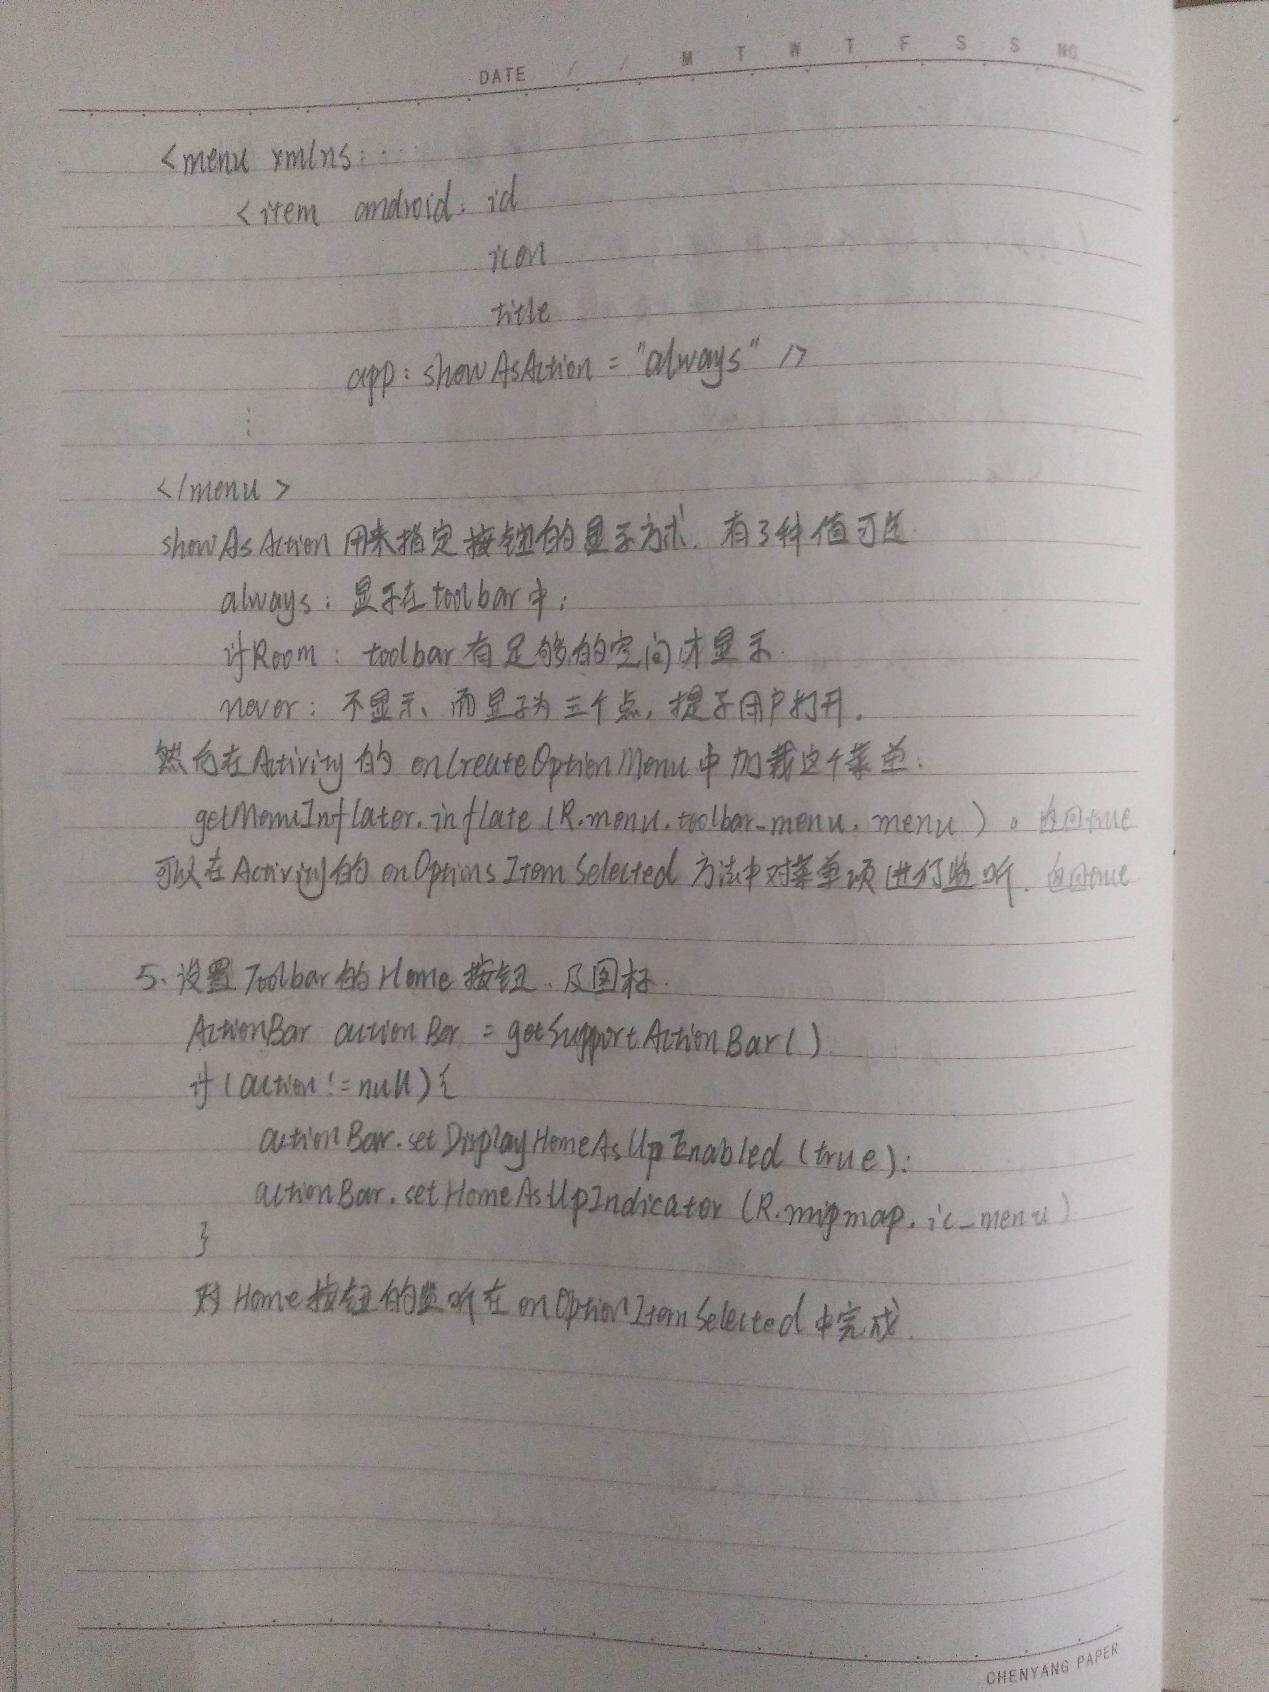 DATE / / M T W T F S S NO
<menu xmlns:......
<item android: id
icon
title
app: showAsAction = "always" />
⋮
</menu>
showAsAction 用来指定按钮的显示方式. 有3种值可选
always: 显示在toolbar中;
ifRoom: toolbar有足够的空间才显示.
never: 不显示、而显示为三个点, 提示用户打开.
然后在Activity的 onCreateOptionMenu中加载这个菜单:
getMenuInflater.inflate (R.menu.toolbar_menu, menu)。返回true
可以在Activity的 onOptionsItemSelected 方法中对菜单项进行监听. 返回true
5、设置Toolbar的Home按钮、及图标.
ActionBar actionBar = getSupportActionBar()
if (action != null) {
actionBar.setDisplayHomeAsUpEnabled (true);
actionBar.setHomeAsUpIndicator (R.mipmap.ic_menu)
}
对Home按钮的监听在 onOptionItemSelected中完成.
CHENYANG PAPER